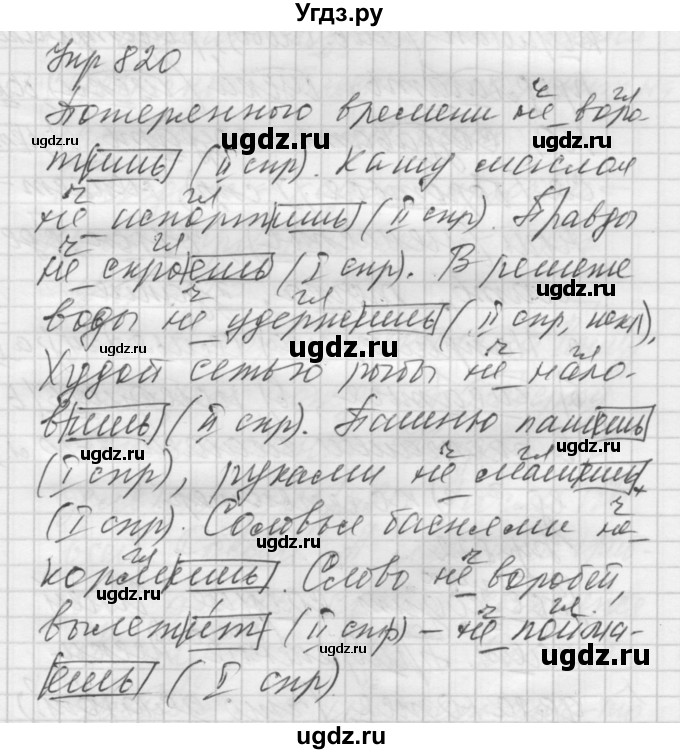 Угдз.ру
Упр 820
Потерянного времени не воро-
тишь (II спр). Кашу маслом
не испортишь (II спр). Правды
не скроешь (I спр). В решете
воды не удержишь (II спр, искл),
Худой сетью рыбы не нало-
вишь (II спр). Пашню пашешь
(I спр), руками не машешь
(I спр). Соловья баснями не
кормишь. Слово не воробей,
вылетит (II спр) – не пойма-
ешь (I спр)
ugdz.ru